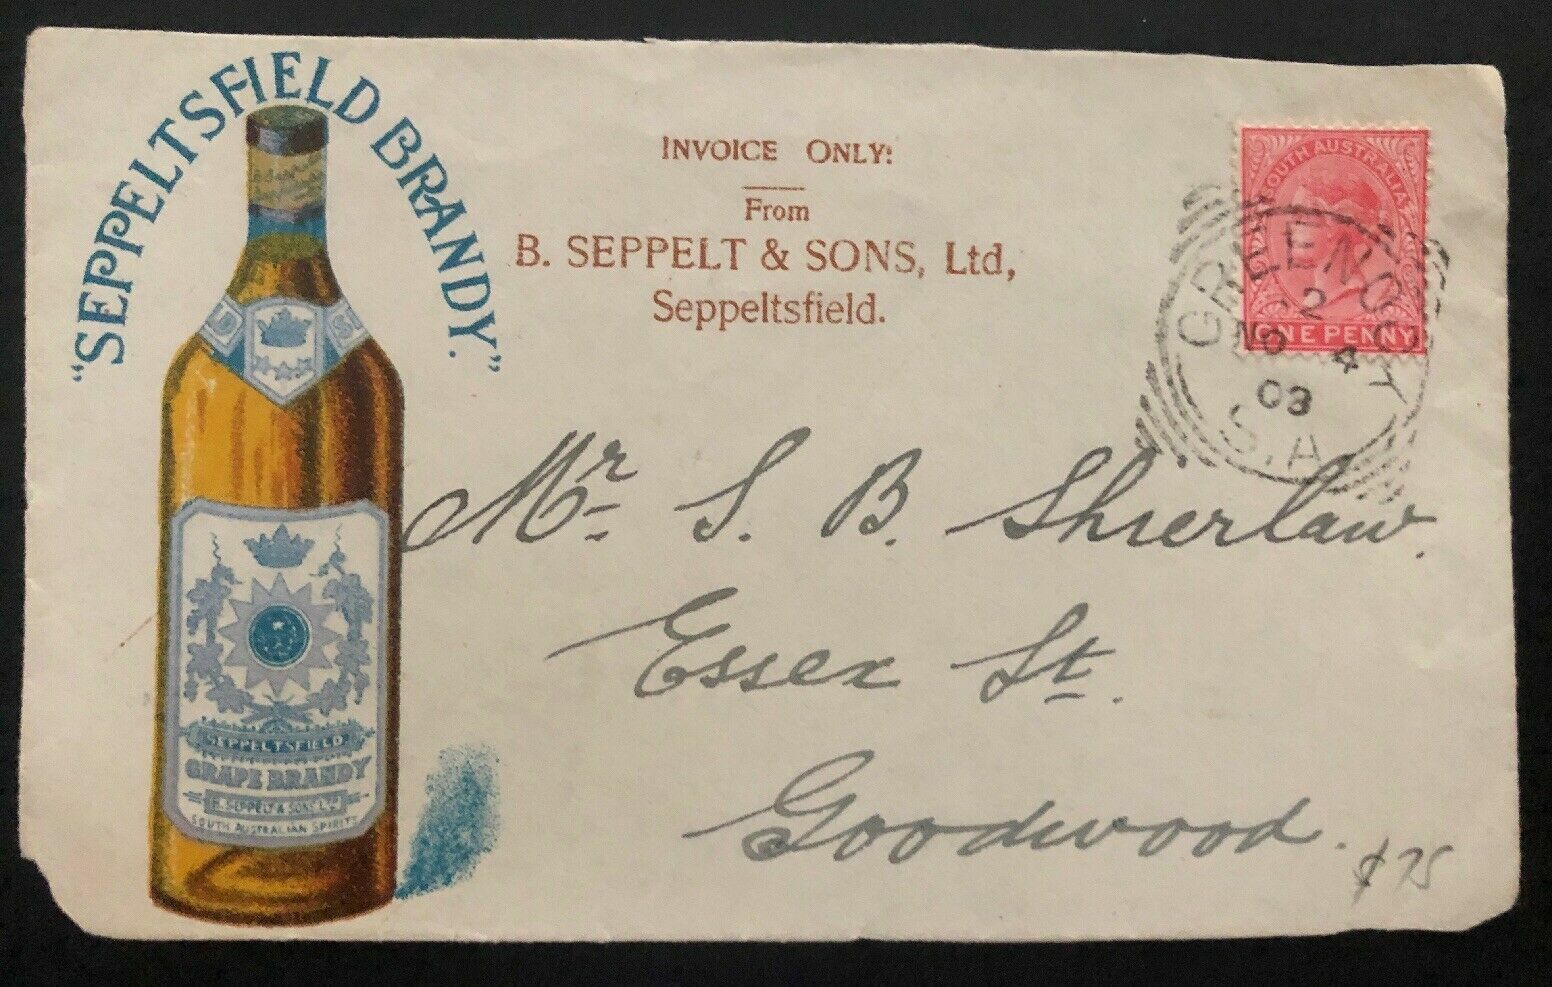 "SEPPELTSFIELD BRANDY."
INVOICE ONLY:
From
B. SEPPELT & SONS, Ltd,
Seppeltsfield.
SOUTH AUSTRALIA
ONE PENNY
GREENOCK
2
NO 4
03
S.A
Mr S. B. Shierlaw.
Essex St.
Goodwood.
$75
SEPPELTSFIELD
GRAPE BRANDY
B. SEPPELT & SONS LTD
SOUTH AUSTRALIAN SPIRIT